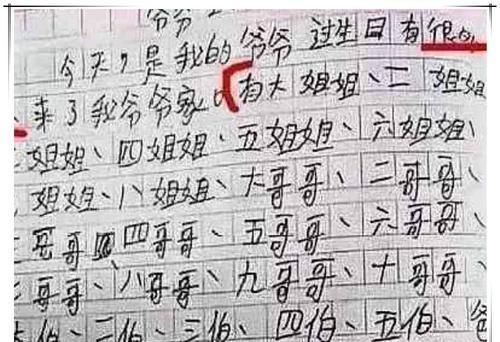 爷爷
今天,是我的爷爷过生日有很
来了我爷爷家,有大姐姐、二姐姐
姐姐、四姐姐、五姐姐、六姐姐、
姐姐、八姐姐、大哥哥、二哥哥、
三哥哥、四哥哥、五哥哥、六哥哥、
七哥哥、八哥哥、九哥哥、十哥哥、
大伯、二伯、三伯、四伯、五伯、